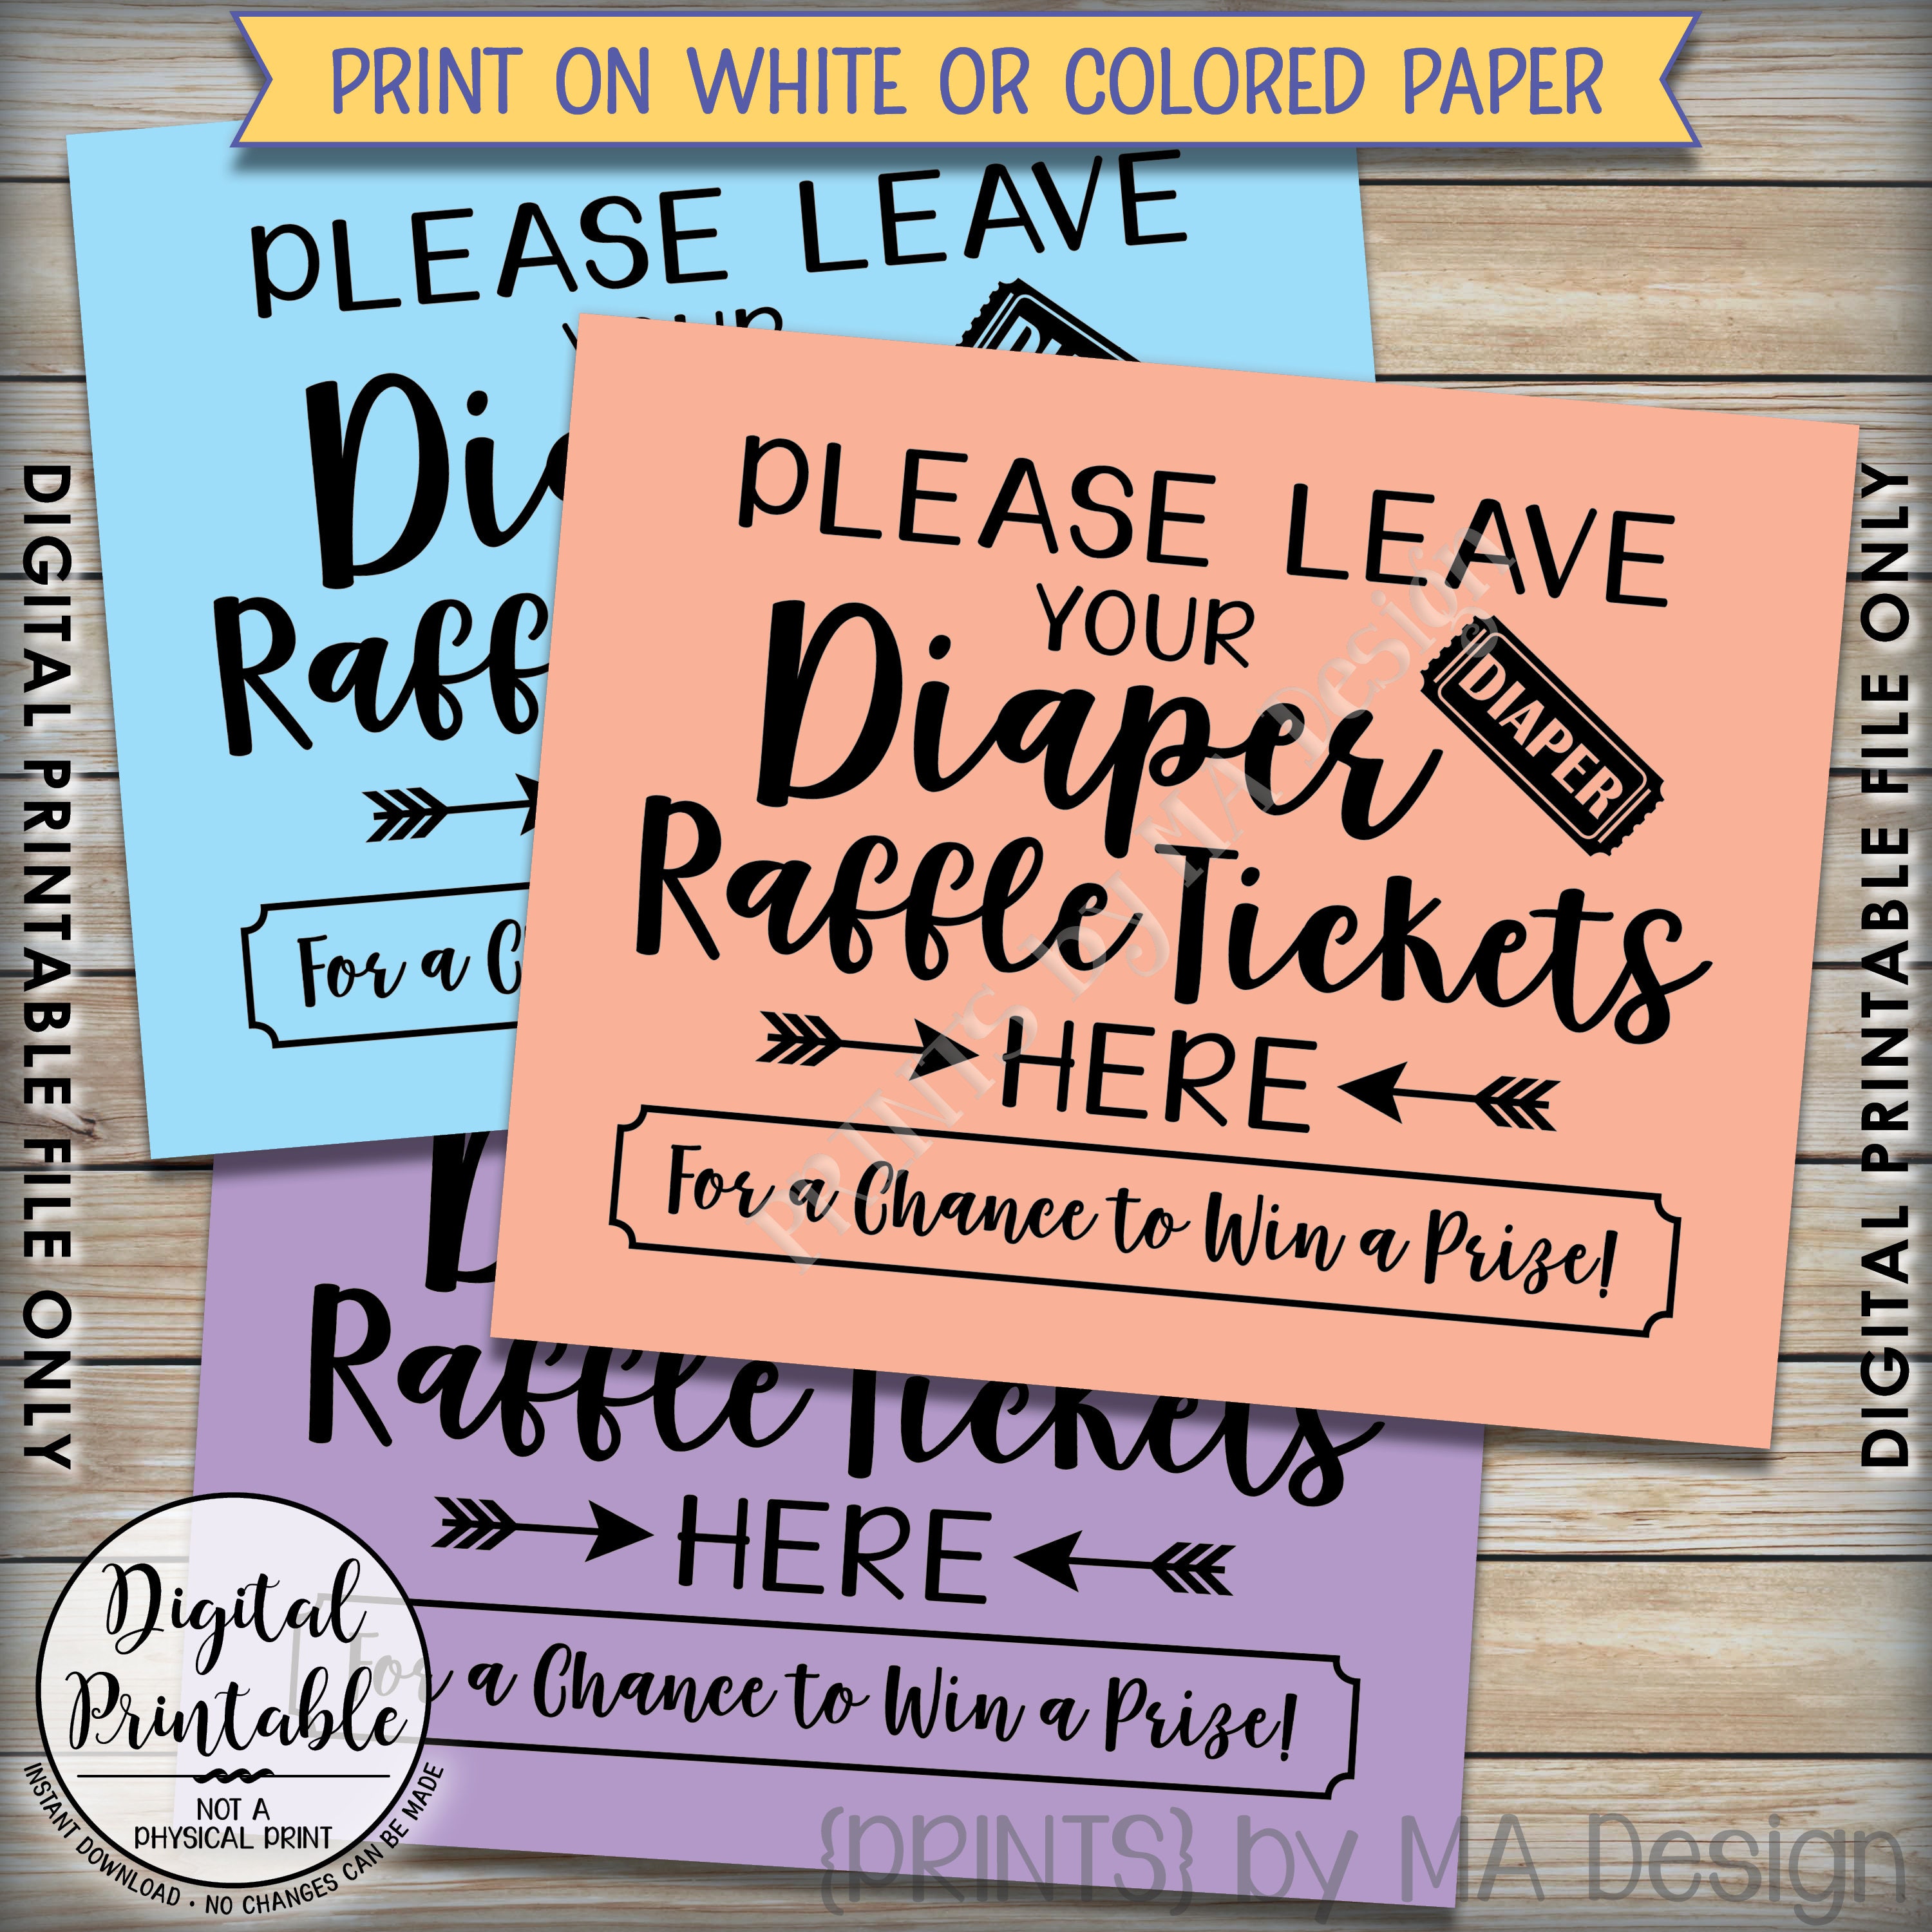 PRINT ON WHITE OR COLORED PAPER
PLEASE LEAVE
Raff
For a C
PLEASE LEAVE
YOUR
Diaper
DIAPER
Raffle Tickets
HERE
For a Chance to Win a Prize!
Raffle Tickets
HERE
For a Chance to Win a Prize!
DIGITAL PRINTABLE FILE ONLY
DIGITAL PRINTABLE FILE ONLY
Digital
Printable
NOT A
PHYSICAL PRINT
INSTANT DOWNLOAD • NO CHANGES CAN BE MADE
PRINTS by MA Design
{PRINTS} by MA Design